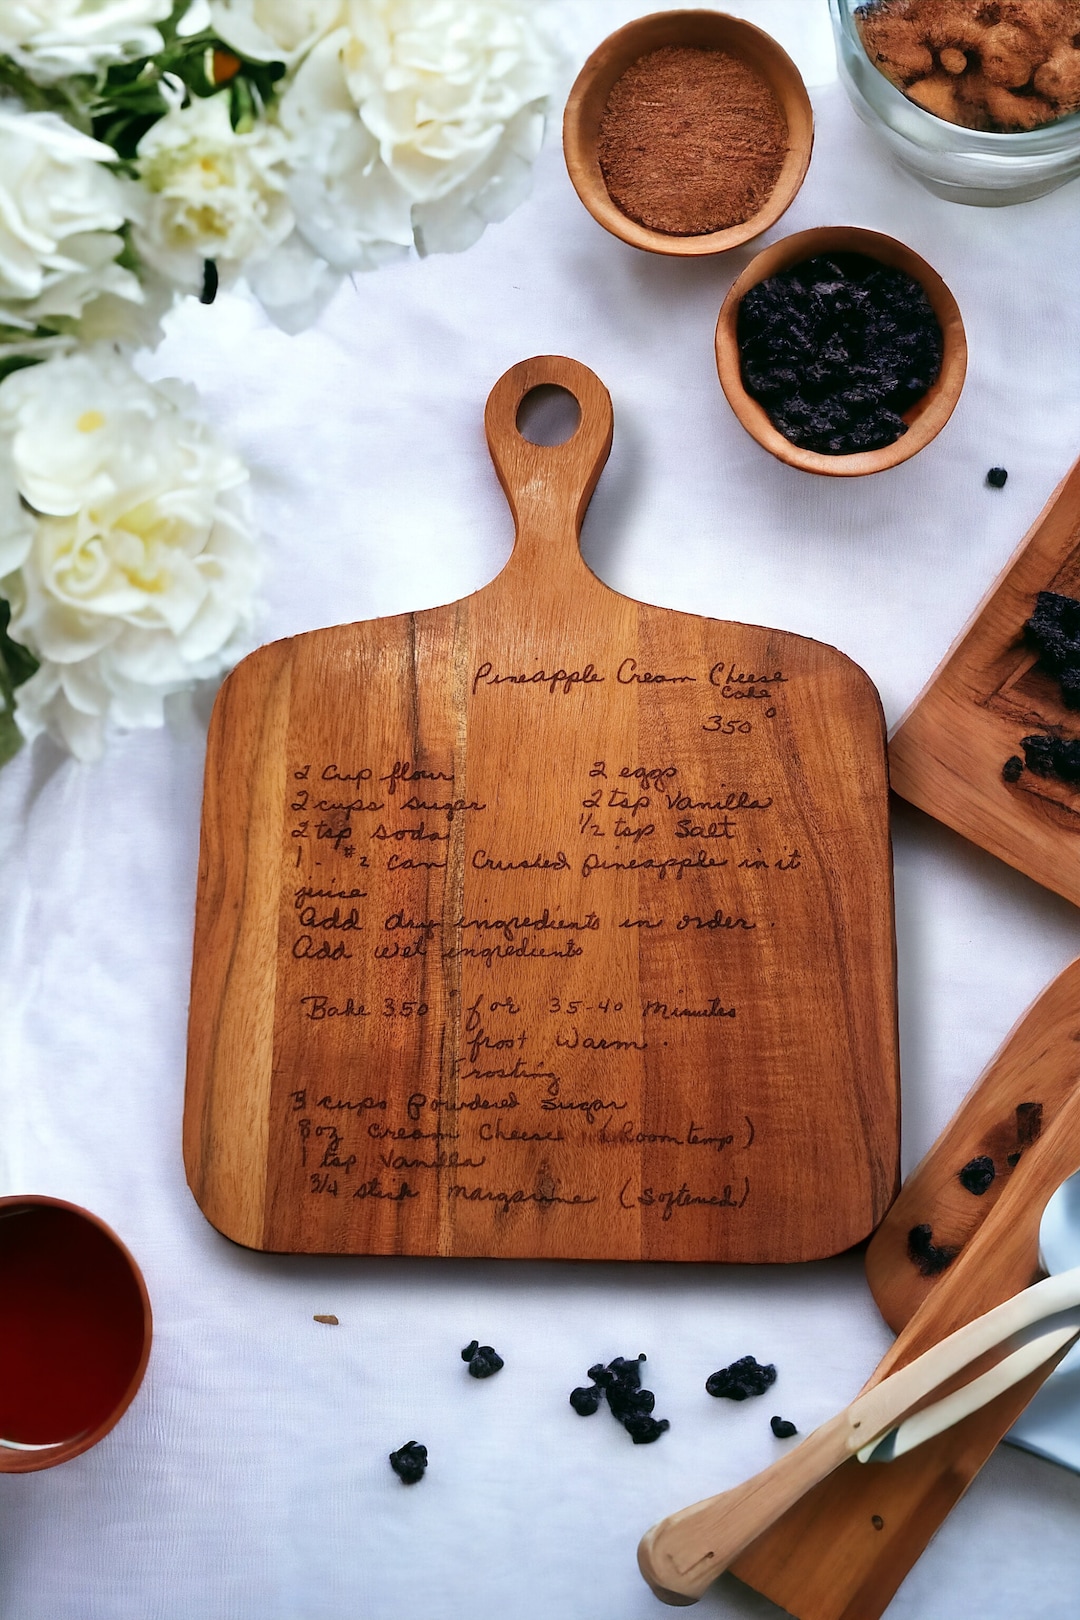 Pineapple Cream Cheese
Cake
350°
2 Cup flour 2 eggs
2 cups sugar 2 tsp Vanilla
2 tsp soda 1/2 tsp Salt
1 - #2 can Crushed pineapple in it
juice
Add dry ingredients in order.
Add wet ingredients
Bake 350° for 35-40 Minutes
frost Warm.
Frosting
3 cups Powdered Sugar
8oz Cream Cheese (Room temp)
1 tsp Vanilla
3/4 stick margarine (Softened)